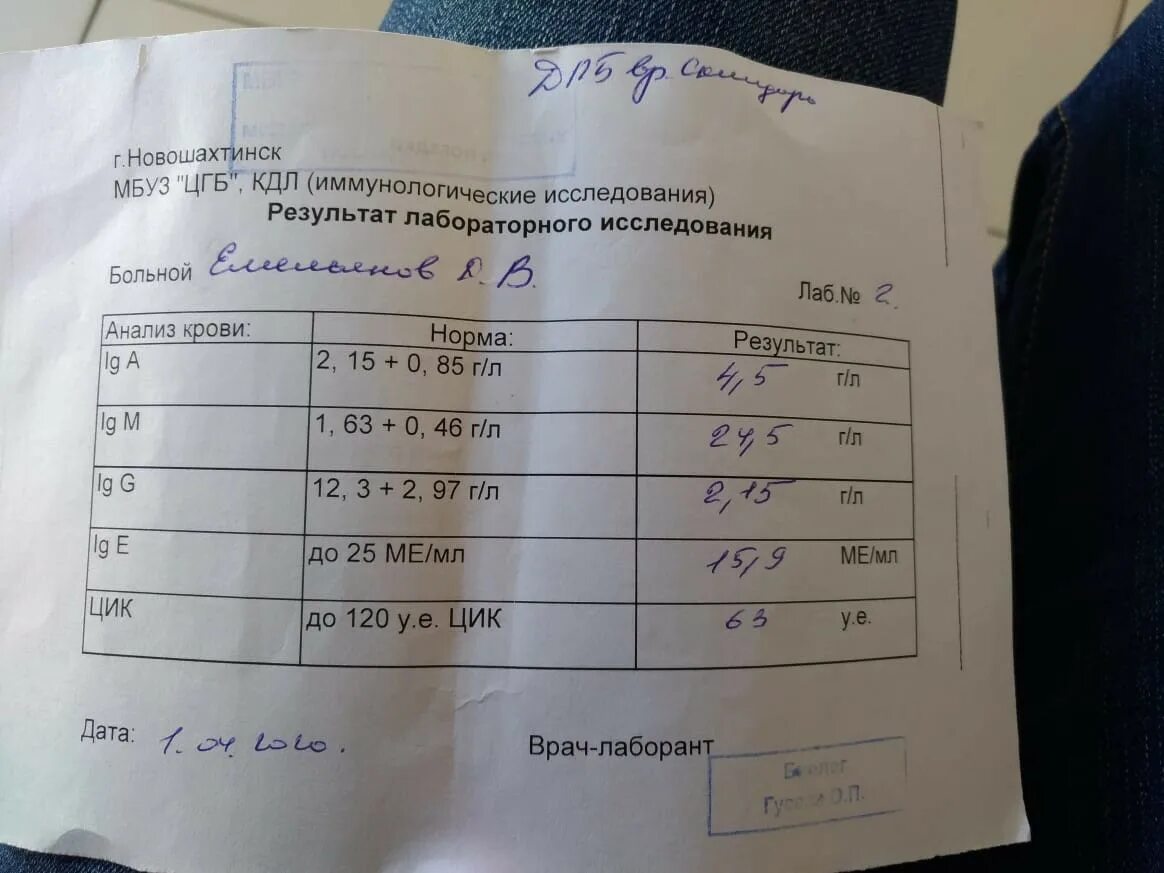 ДПБ вр.
г.Новошахтинск
МБУЗ "ЦГБ", КДЛ (иммунологические исследования)
Результат лабораторного исследования
Больной Емельянов Д. В.
Лаб.№ 2.
Анализ крови: Норма: Результат:
Ig A 2, 15 + 0, 85 г/л 4,5 г/л
Ig M 1, 63 + 0, 46 г/л 24,5 г/л
Ig G 12, 3 + 2, 97 г/л 2,15 г/л
Ig E до 25 МЕ/мл 15,9 МЕ/мл
ЦИК до 120 у.е. ЦИК 63 у.е.
Дата: 1.04.2020.
Врач-лаборант
Биолог
О.П.